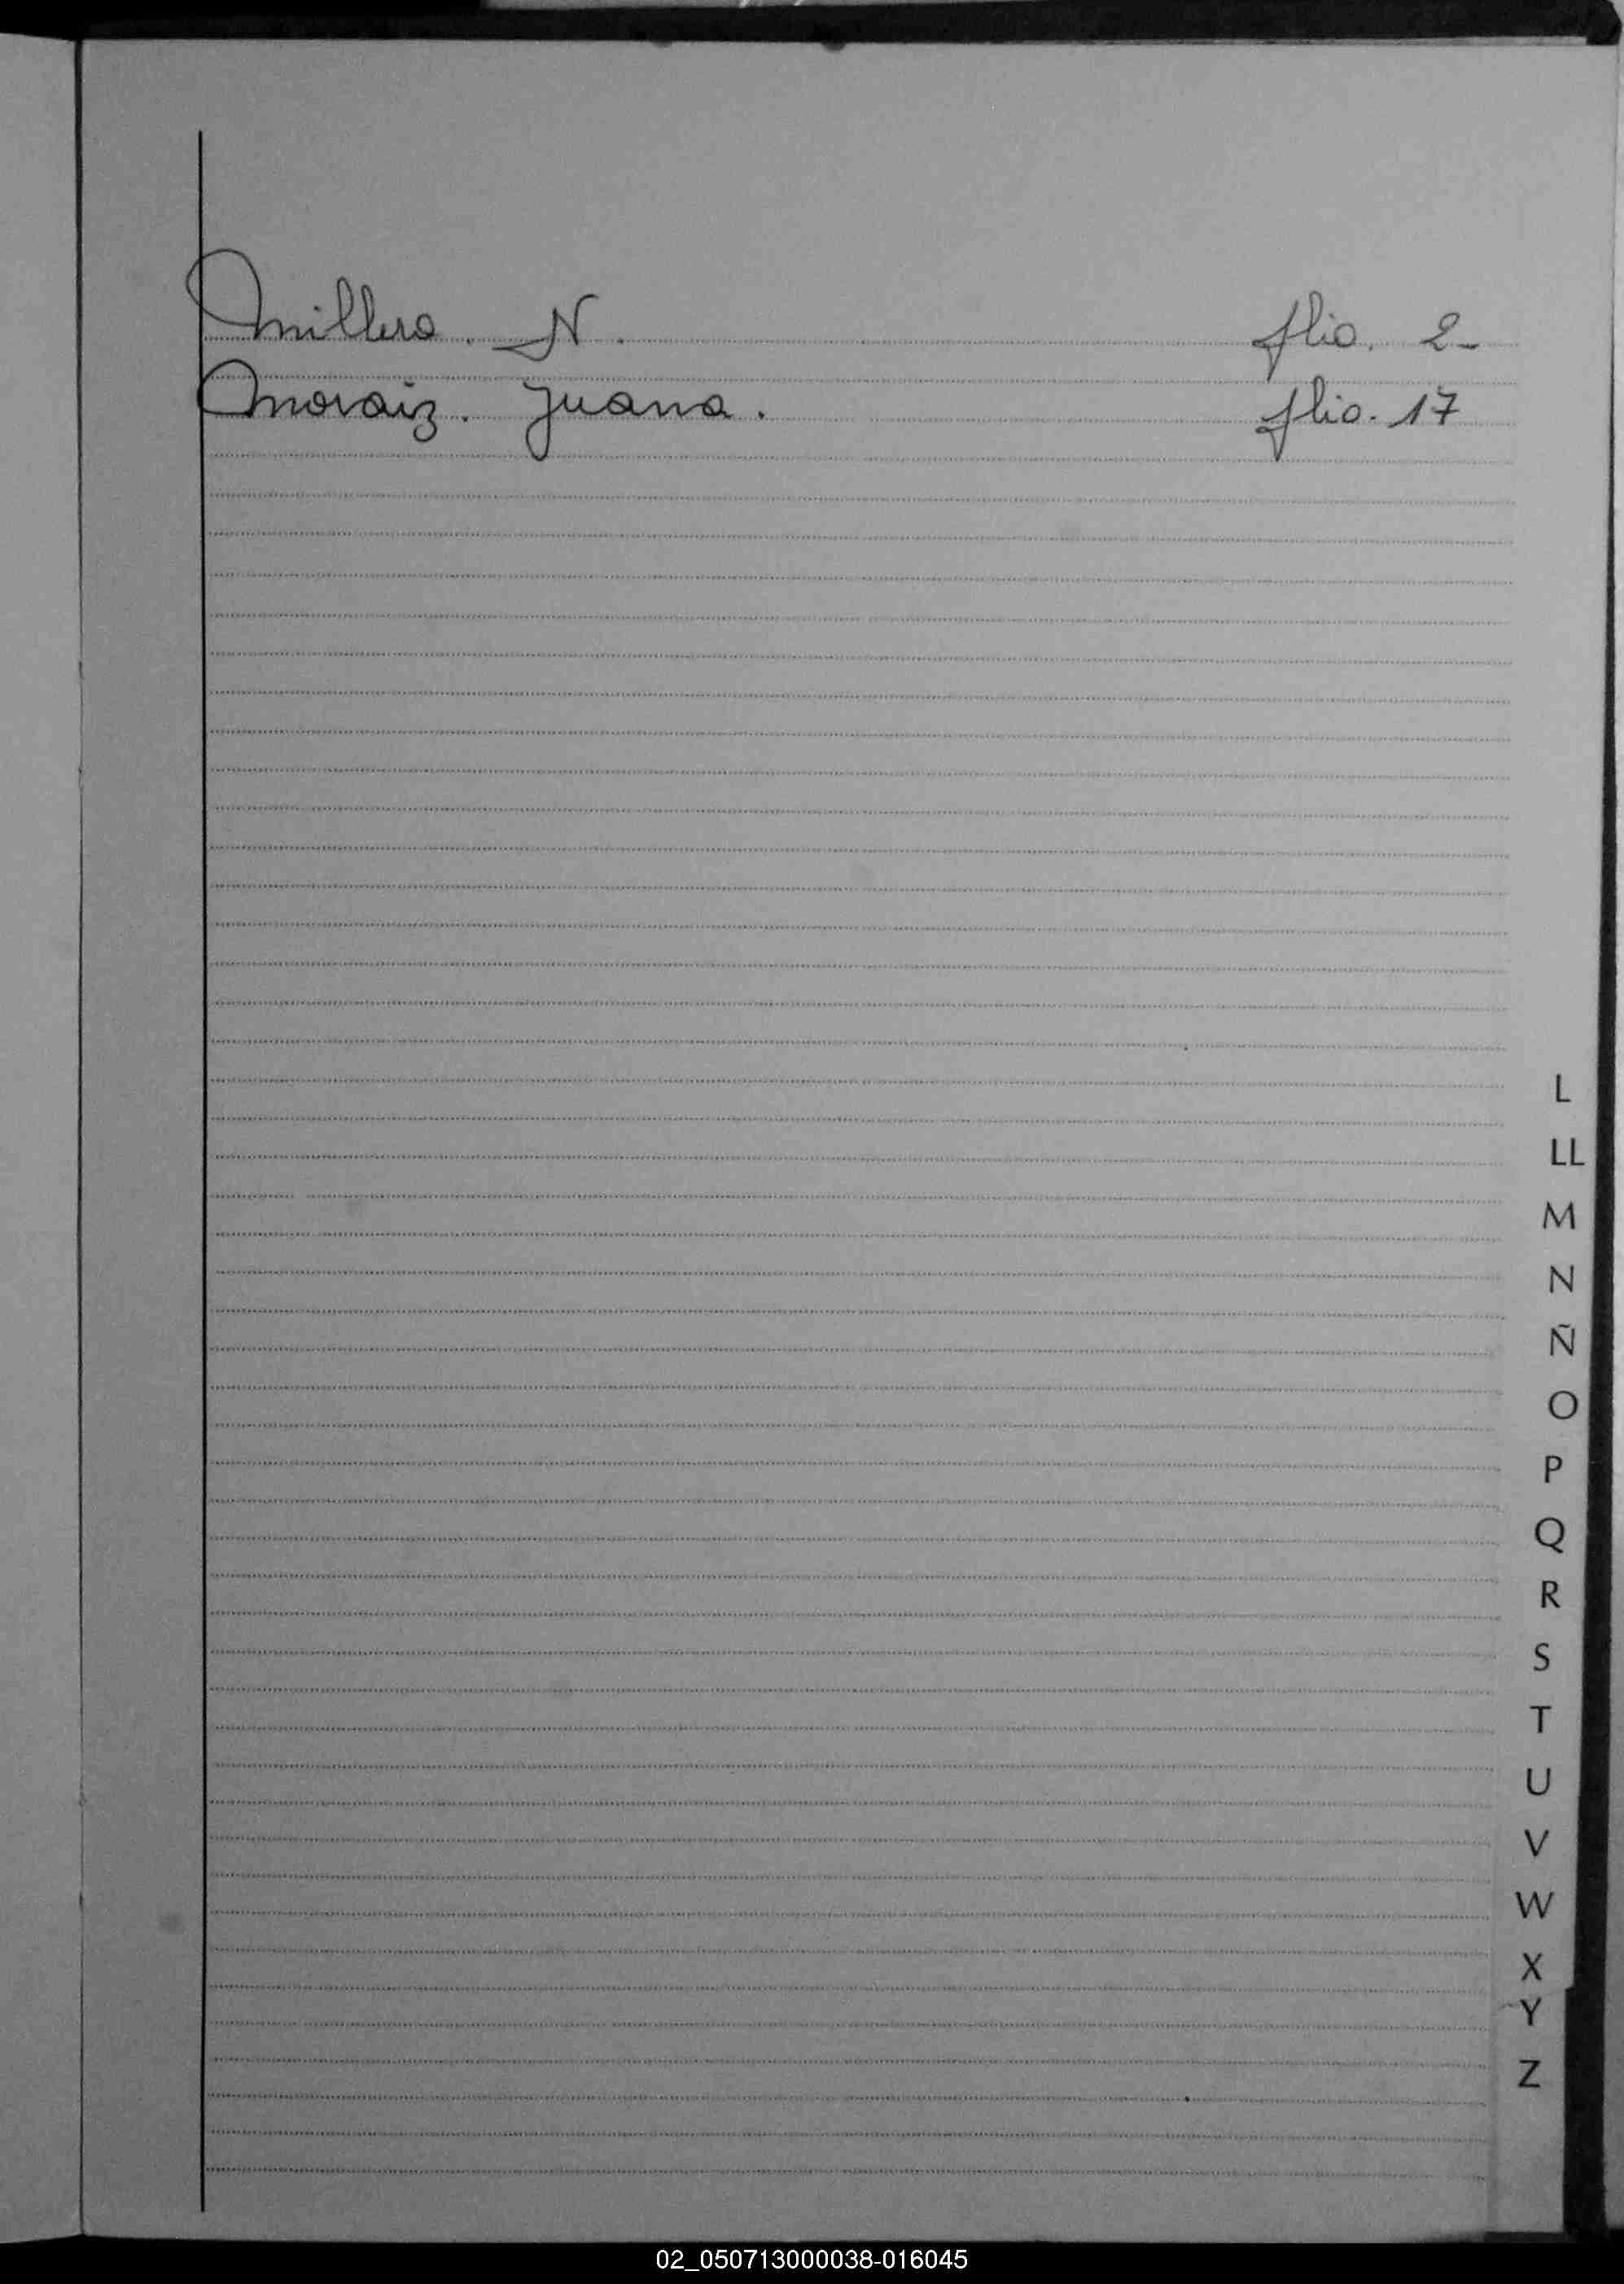 Millero. N. flio. 2-
Moraiz. Juana. flio. 17
L
LL
M
N
Ñ
O
P
Q
R
S
T
U
V
W
X
Y
Z
02_050713000038-016045